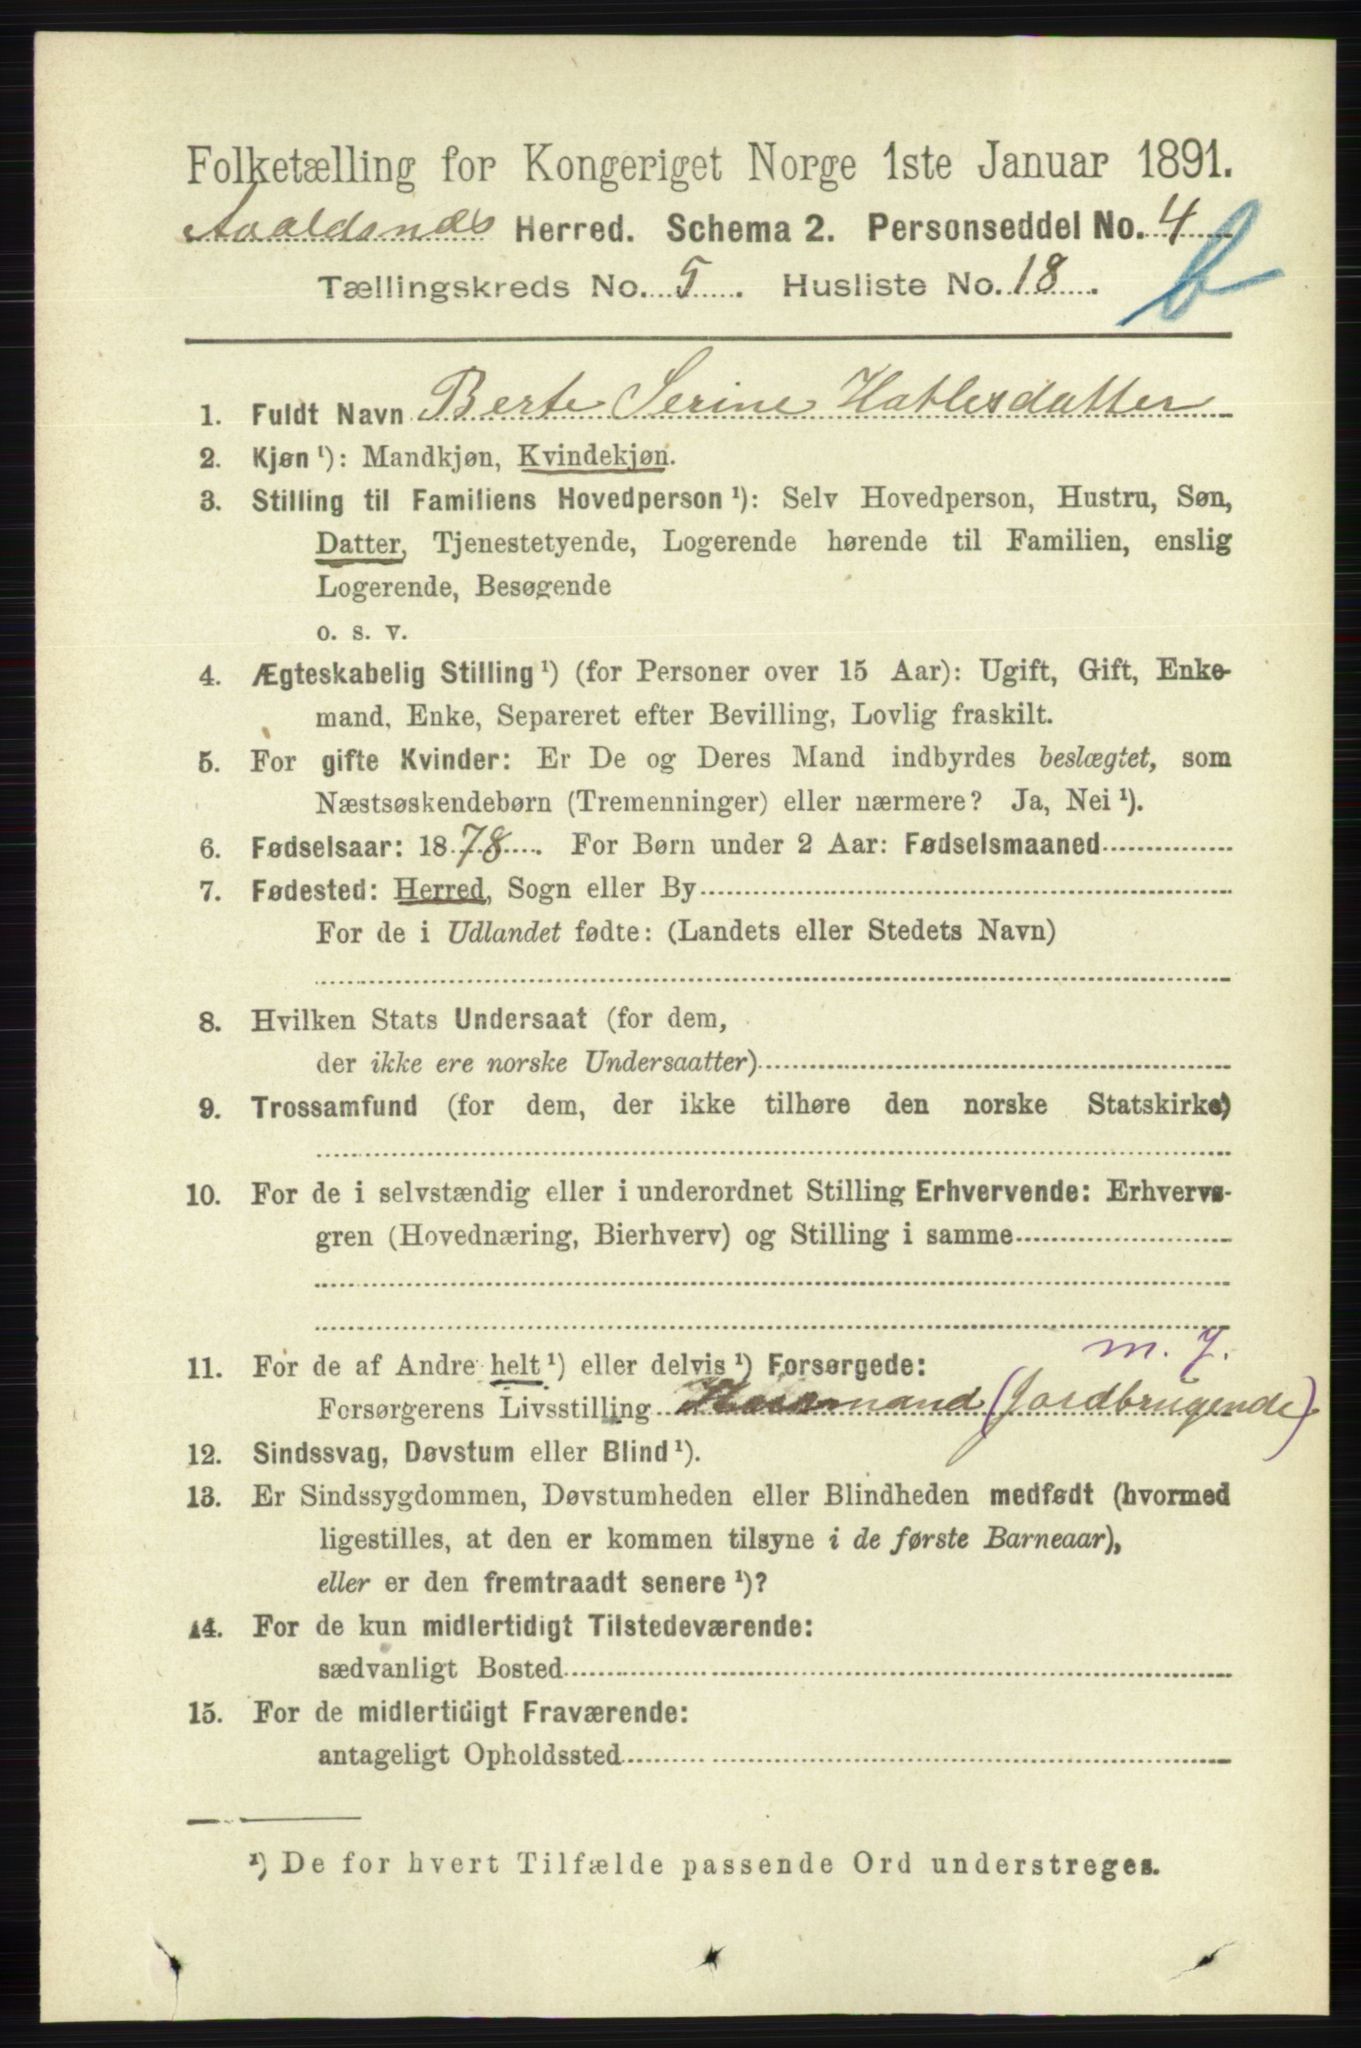 Folketælling for Kongeriget Norge 1ste Januar 1891.
Herred. Schema 2. Personseddel No. 4
b
Tællingskreds No. 5. Husliste No. 18.
1. Fuldt Navn Berte Serine Hatlesdatter
2. Kjøn ¹): Mandkjøn, Kvindekjøn.
3. Stilling til Familiens Hovedperson ¹): Selv Hovedperson, Hustru, Søn,
Datter, Tjenestetyende, Logerende hørende til Familien, enslig
Logerende, Besøgende
o. s. v.
4. Ægteskabelig Stilling ¹) (for Personer over 15 Aar): Ugift, Gift, Enke-
mand, Enke, Separeret efter Bevilling, Lovlig fraskilt.
5. For gifte Kvinder: Er De og Deres Mand indbyrdes beslægtet, som
Næstsøskendebørn (Tremenninger) eller nærmere? Ja, Nei ¹).
6. Fødselsaar: 1878. For Børn under 2 Aar: Fødselsmaaned
7. Fødested: Herred, Sogn eller By
For de i Udlandet fødte: (Landets eller Stedets Navn)
8. Hvilken Stats Undersaat (for dem,
der ikke ere norske Undersaatter)
9. Trossamfund (for dem, der ikke tilhøre den norske Statskirke)
10. For de i selvstændig eller i underordnet Stilling Erhvervende: Erhvervs-
gren (Hovednæring, Bierhverv) og Stilling i samme
11. For de af Andre helt ¹) eller delvis ¹) Forsørgede: m. J.
Forsørgerens Livsstilling Husmand (Jordbrugende)
12. Sindssvag, Døvstum eller Blind ¹).
13. Er Sindssygdommen, Døvstumheden eller Blindheden medfødt (hvormed
ligestilles, at den er kommen tilsyne i de første Barneaar),
eller er den fremtraadt senere ¹)?
14. For de kun midlertidigt Tilstedeværende:
sædvanligt Bosted
15. For de midlertidigt Fraværende:
antageligt Opholdssted
¹) De for hvert Tilfælde passende Ord understreges.